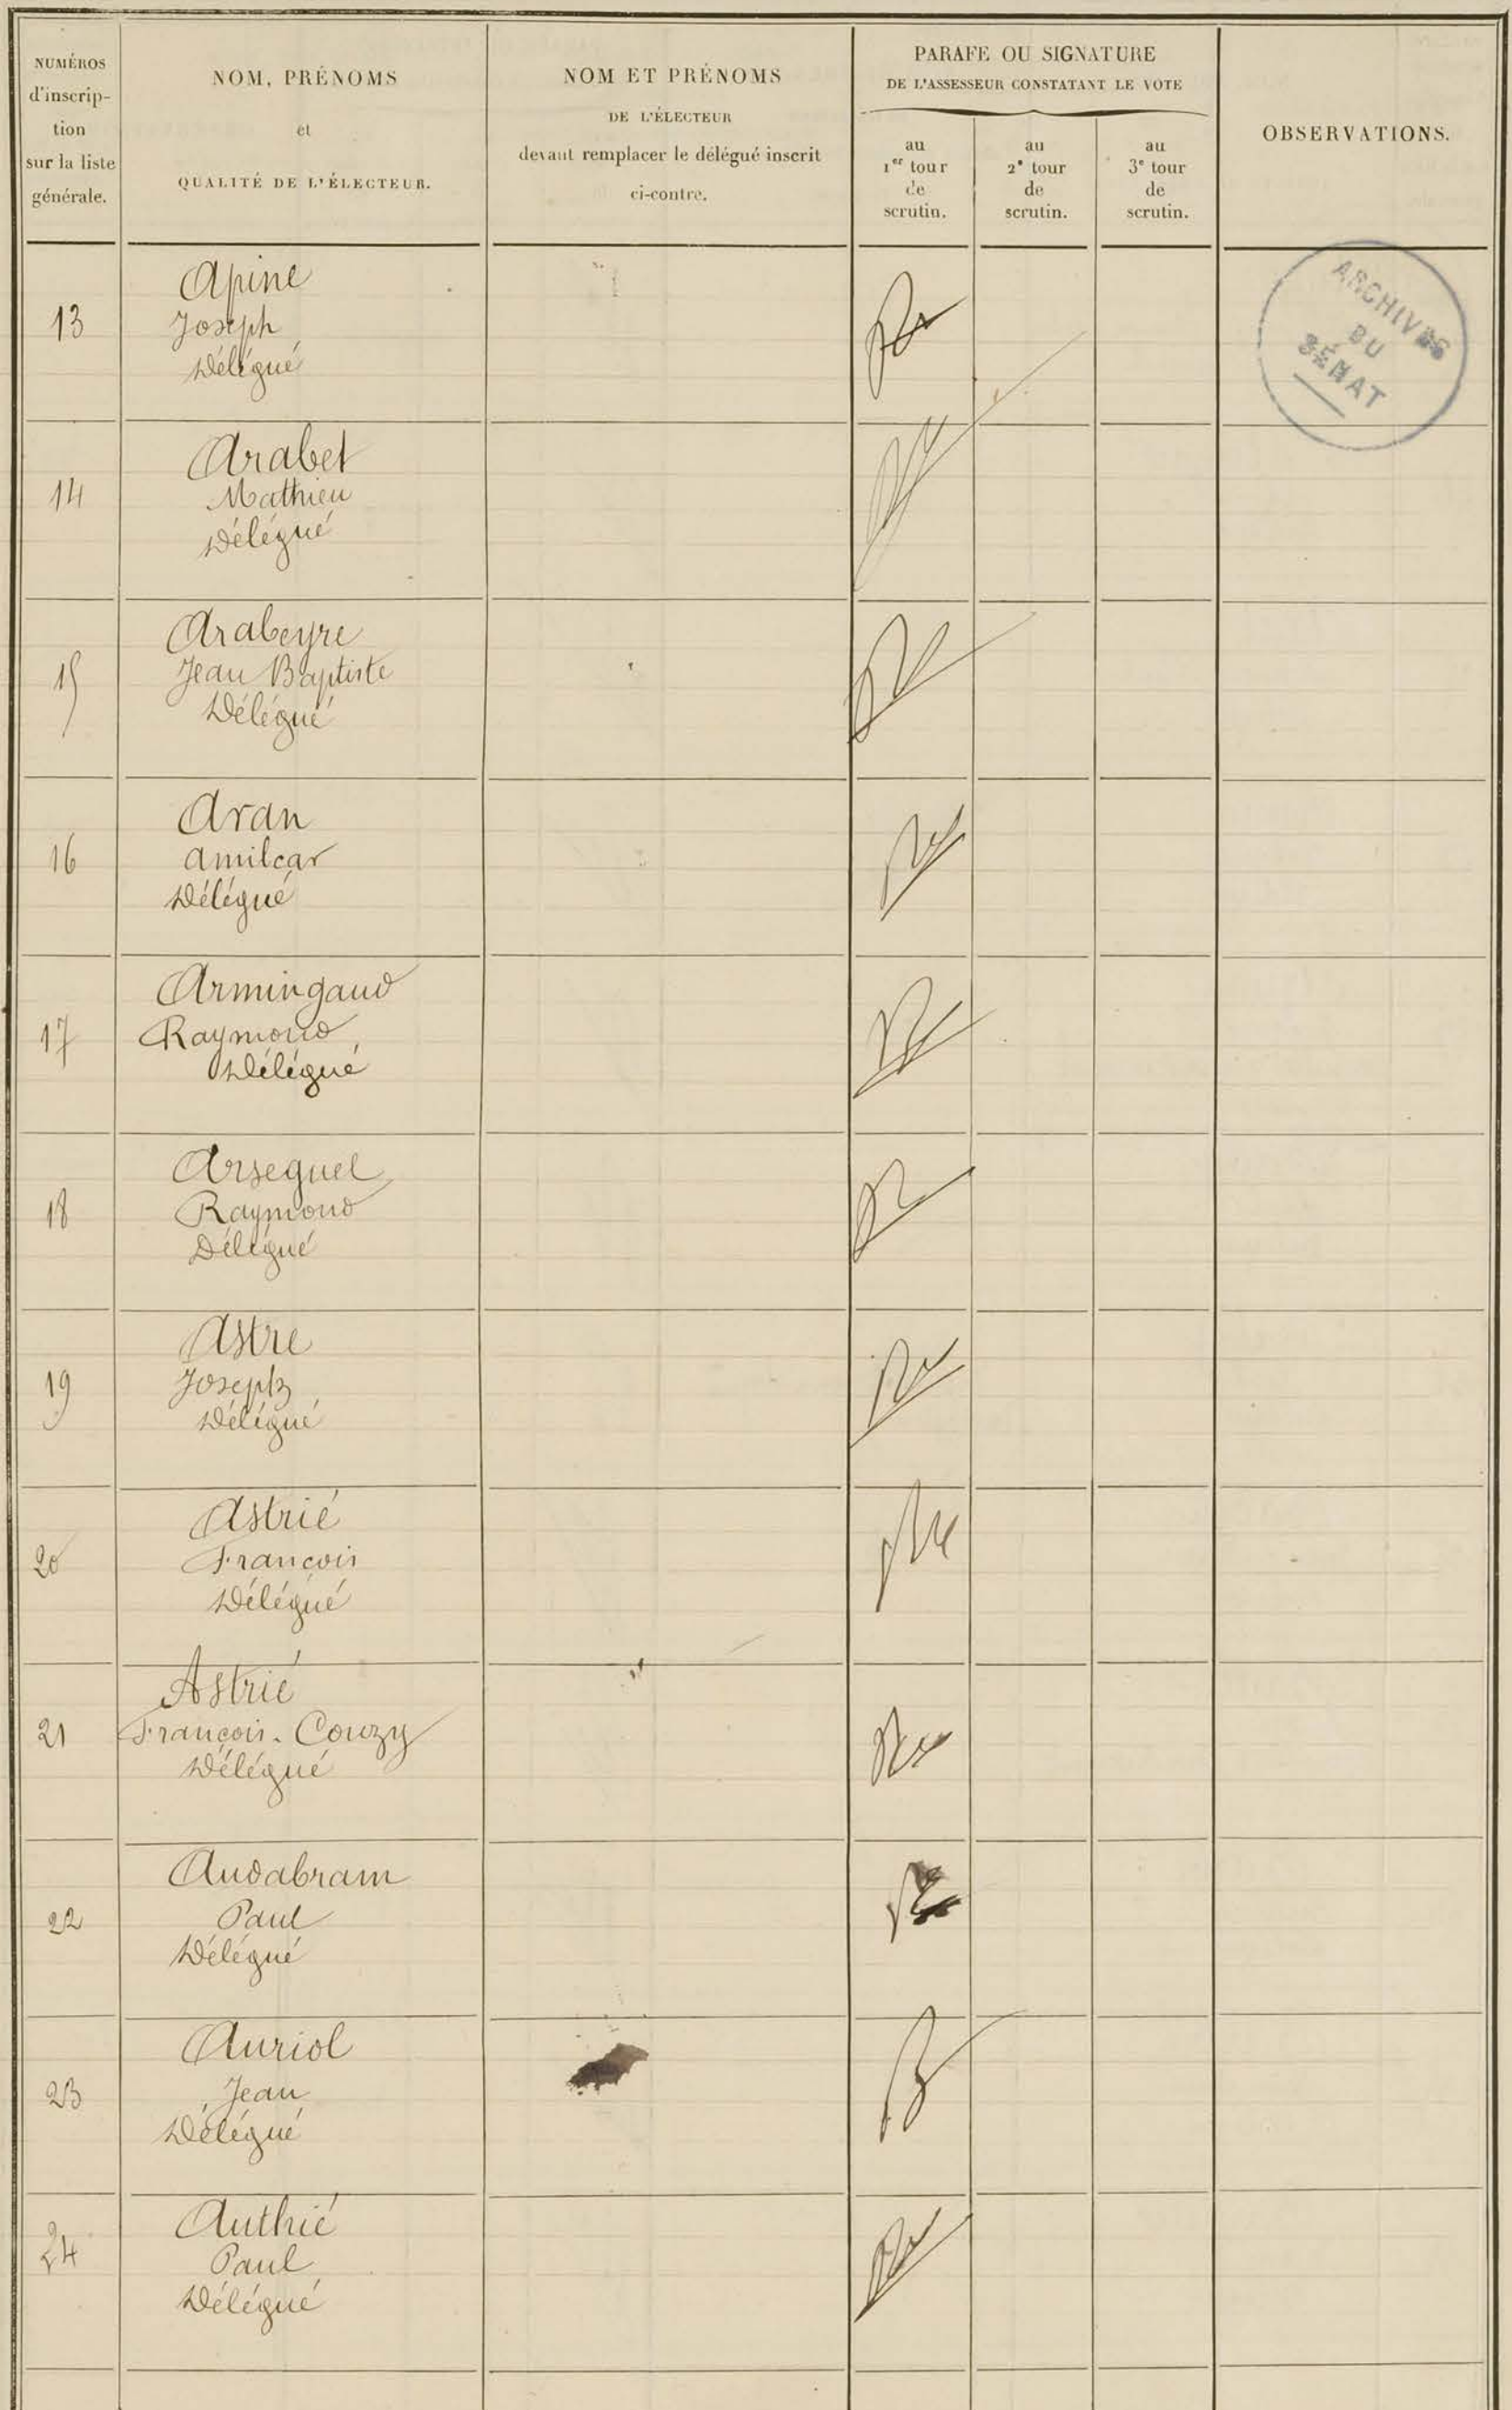 NUMÉROS
d'inscrip-
tion
sur la liste
générale.
NOM, PRÉNOMS
et
QUALITÉ DE L'ÉLECTEUR.
NOM ET PRÉNOMS
DE L'ÉLECTEUR
devant remplacer le délégué inscrit
ci-contre.
PARAFE OU SIGNATURE
DE L'ASSESSEUR CONSTATANT LE VOTE
au
1er tour
de
scrutin.
au
2e tour
de
scrutin.
au
3e tour
de
scrutin.
OBSERVATIONS.
ARCHIVES
DU
SÉNAT
13
Apine
Joseph
Délégué
14
Arabet
Mathieu
Délégué
15
Arabeyre
Jean Baptiste
Délégué
16
Aran
Amilcar
Délégué
17
Armingaud
Raymond
Délégué
18
Arseguel
Raymond
Délégué
19
Astre
Joseph
Délégué
20
Astrié
François
Délégué
21
Astrié
François. Couzy
Délégué
22
Audabram
Paul
Délégué
23
Auriol
Jean
Délégué
24
Authié
Paul
Délégué